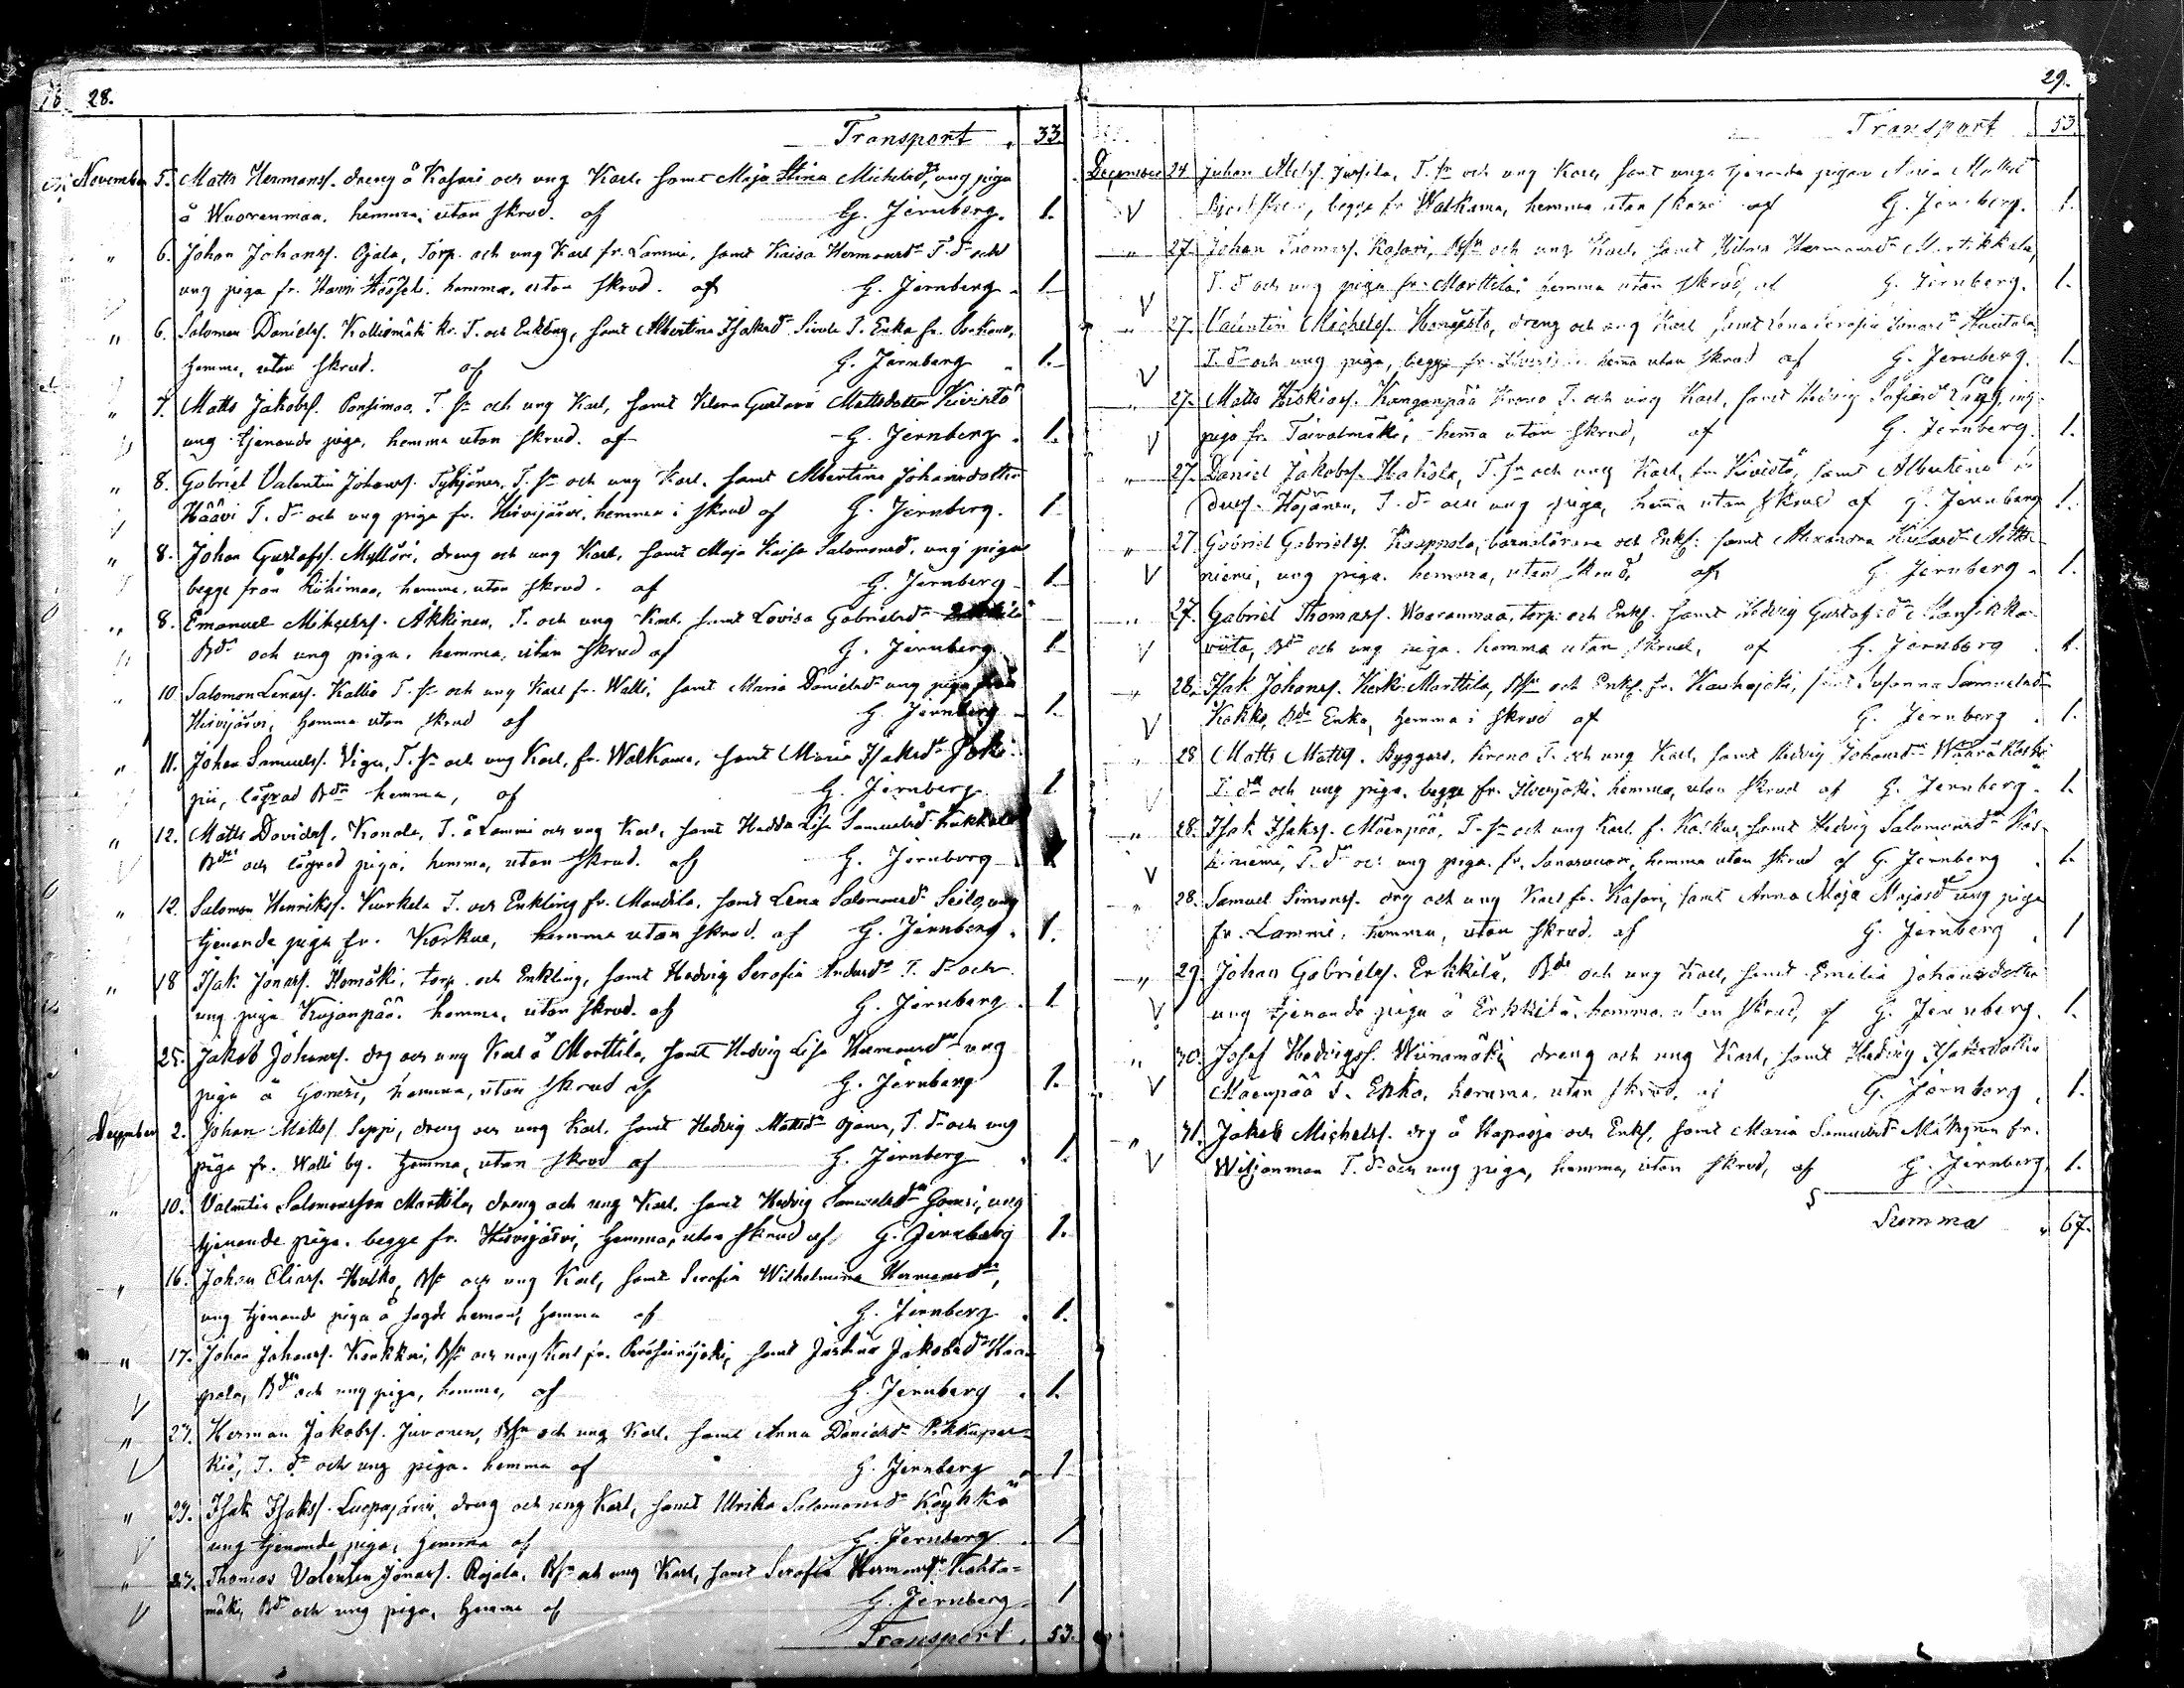 28.
Transport . 33.
November 5. Matts Hermanss. dreng å Kasari och ung Karl, samt Maja Stina Michelsdr, ung piga
å Wuorenmaa. hemma, utan skrud. af G. Jernberg. 1.
" 6. Johan Johanss. Ojala, Torp. och ung Karl fr. Lammi, samt Kaisa Hermansdr T. dr och
ung piga fr. hemma, utan skrud. af G. Jernberg. 1.
" 6. Salomon Danielss. Kalliomäki kr. T. och Enkling, samt Albertina Isaksdr T. Enka fr.
hemma, utan skrud. af G. Jernberg " 1.
" 7. Matts Jakobss. Ponsimaa, T. sn och ung Karl, samt Gustava Mattsdotter Kivistö
ung tjenande piga, hemma utan skrud. af G. Jernberg. 1.
" 8. Gabriel Valentin Johanss. Tyhjänen, T. sn och ung Karl, samt Albertina Johansdotter
Häävi T. dr och ung piga fr. Hirvijärvi, hemma i skrud af G. Jernberg. 1
" 8. Johan Gustafss. Mylläri, dreng och ung Karl, samt Maja Kaisa Salomonsd. ung piga
begge från Riihimaa, hemma, utan skrud. af G. Jernberg 1.
" 8. Emanuel Mikaelss. Äkkinen, T. och ung Karl, samt Lovisa Gabrielsdr
Bdr och ung piga, hemma, utan skrud af G. Jernberg 1
" 10 Salomon Kallio T. sn och ung Karl fr. Walli, samt Maria Danielsdr ung piga från
Hirvijärvi, hemma utan skrud af G. Jernberg 1.
" 11. Johan Samuelss. T. sn och ung Karl, fr. Walkama, samt Maria Isaksdr Joki-
pii, lägrad Bdr hemma, af G. Jernberg. 1
" 12. Matts Davidss. Kanala, T. å Lammi och ung Karl, samt Hedda Lisa Samuelsdr
Bdr och lägrad piga, hemma, utan skrud. af G. Jernberg 1
" 12. Salomon Henrikss. Kurkela T. och Enkling fr. Mandila, samt Lena Salomonsdr ung
tjenande piga fr. Koskue, hemma utan skrud. af G. Jernberg. 1.
" 18 Isak Jonass. torp. och Enkling, samt Hedvig Serafia T. dr och
ung piga Kujanpää. hemma, utan skrud. af G. Jernberg. 1
25. Jakob Johanss. drg och ung Karl å Marttila, samt Hedvig Lisa Hermansdr ung
piga å Gomsi, hemma, utan skrud af G. Jernberg 1.
December 2. Johan Mattss. Seppi, dreng och ung Karl, samt Hedvig Mattsdr Ojanen, T. dr och ung
piga fr. Walli by. hemma, utan skrud af G. Jernberg 1.
" 10. Valentin Salomonsson Marttila, dreng och ung Karl, samt Hedvig Samuelsdr Gomsi, ung
tjenande piga. begge fr. Hirvijärvi, hemma, utan skrud af G. Jernberg 1.
" 16. Johan Eliass. Hulko, Bsn och ung Karl, samt Serafia Wilhelmina Hermansdr,
ung tjenande piga å sagde heman, hemma af G. Jernberg 1.
" 17. Johan Johanss. Kookkari, Bsn och ung Karl fr. Peräseinäjoki, samt Justina Jakobsdr Haa-
pala, Bdr och ung piga, hemma, af G. Jernberg . 1.
" 27. Herman Jakobss. Juvonen, Bsn och ung Karl, samt Anna Danielsdr
kiö, T. dr och ung piga. hemma af G. Jernberg 1
" 29. Isak Isakss. Luopajärvi, dreng och ung Karl, samt Ulrika Salomonsdr Köykkä
ung tjenande piga, hemma af G. Jernberg . 1
" 27. Thomas Valentin Jonass. Rajala, Bsn och ung Karl, samt Serafia Hermansdr Kohta-
mäki, Bdr och ung piga, hemma af G. Jernberg 1
Transport . 53.
29.
Transport 53.
December 24 Johan Jussila, T. sn och ung Karl, samt unga tjenande pigan
begge fr Walkama, hemma utan skrud af G. Jernberg. 1.
" 27. Johan Thomass. Kasari, Bsn och ung Karl, samt Hilma Hermansdr Martikkala,
T. dr och ung piga fr. Marttila; hemma utan skrud, af G. Jernberg. 1.
" 27. Valentin Michelss. dreng och ung Karl samt Lena Serafia Hautala
T. dr och ung piga, begge fr. hemma utan skrud af G. Jernberg. 1.
" 27. Matts Kangaspää Krono T. och ung Karl, samt Hedvig Sofiasdr ung
piga fr. Taivalmäki, hemma utan skrud, af G. Jernberg. 1.
" 27. Daniel Jakobss. Hakola, T. sn och ung Karl, fr. Kivistö, samt Albertina
T. dr och ung piga, hemma utan skrud af G. Jernberg 1.
" 27. Gabriel Gabrielss. Kauppala, barnalärare och Enkl: samt Alexandra Mitti-
niemi, ung piga. hemma, utan skrud, af G. Jernberg . 1.
" 27. Gabriel Thomass. Wuorenmaa, torp. och Enkl. samt Hedvig Gustafsdr Mansikka-
viita, Bdr och ung piga. hemma utan skrud, af G. Jernberg . 1.
" 28. Isak Johanss. Keski Marttila, Bsn och Enkl. fr. Kauhajoki, samt Susanna Samuelsdr
Kokko, Bde Enka, hemma i skrud af G. Jernberg . 1.
" 28 Matts Mattss. Byggari, Krono T. och ung Karl, samt Hedvig Johansdr
T. dr och ung piga, begge fr. hemma, utan skrud af G. Jernberg. 1.
" 28. Isak Isakss. Mäenpää, T. sn och ung Karl. f. Koskue, samt Hedvig Salomonsdr Kos-
kiniemi, T. dr och ung piga. fr. hemma utan skrud af G. Jernberg . 1.
" 28. Samuel Simonss. drg och ung Karl fr. Kasari, samt Anna Maja Majasdr ung piga
fr. Lammi, hemma, utan skrud. af G. Jernberg . 1
" 29. Johan Gabrielss. Erkkilä, Bde och ung Karl, samt Emilia Johansdotter
ung tjenande piga å Erkkilä, hemma, utan skrud, af G. Jernberg. 1.
" 30. Josef Hedvigss. Wiinamäki, dreng och ung Karl, samt Hedvig Isaksdotter
Mäenpää T. Enka, hemma, utan skrud, af G. Jernberg . 1.
" 31. Jakob Michelss. drg å Haparaja och Enkl, samt Maria Samuelsdr Mäkynen fr.
Wiljanmaa T. dr och ung piga, hemma, utan skrud, af G. Jernberg. 1.
Summa . 67.